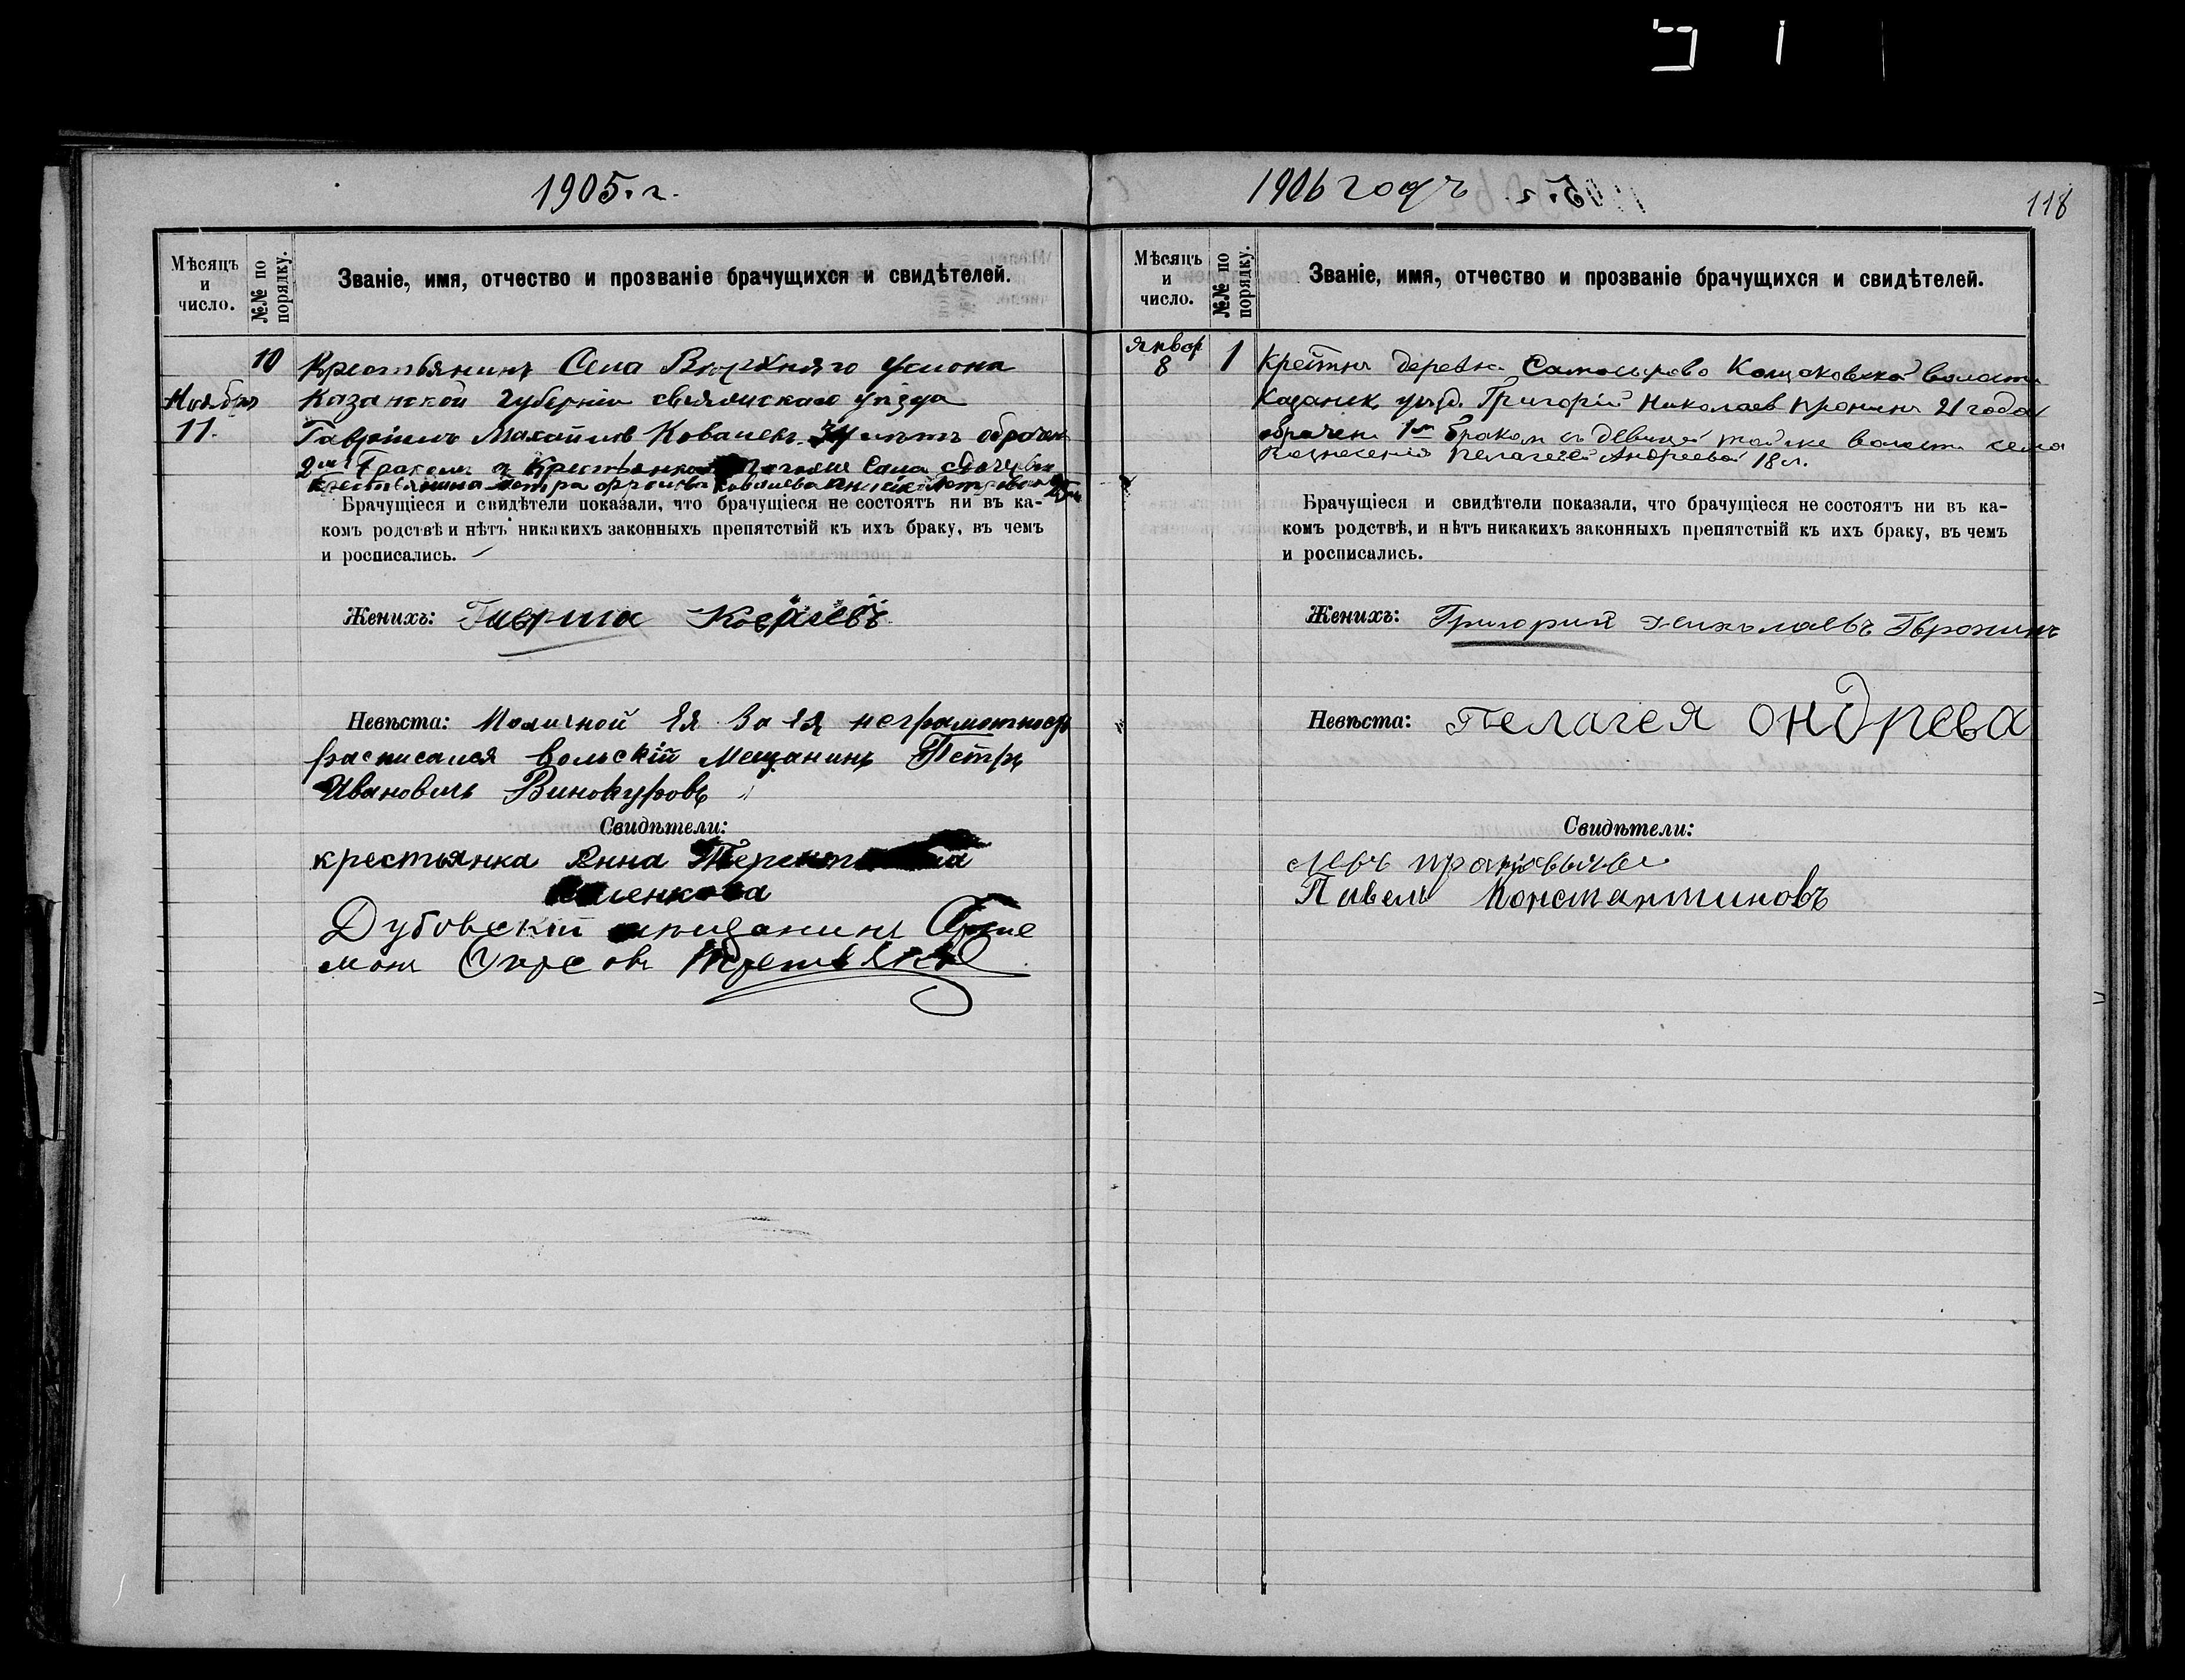 1905. г.
Мѣсяцъ
и
число.
№№ по
порядку.
Званіе, имя, отчество и прозваніе брачущихся и свидѣтелей.
Ноября
11.
10
Крестьянинъ Села Верхняго Услона
Казанской Губерніи свіяжскаго уѣзда
Гавріилъ Михайловъ Ковалевъ 34 лѣтъ обрачен
2мъ бракомъ с Крестьянкой Села
крестьянина Петра
Брачущіеся и свидѣтели показали, что брачущіеся не состоятъ ни въ ка-
комъ родствѣ и нѣтъ никакихъ законныхъ препятствій къ ихъ браку, въ чемъ
и росписались.
Женихъ: Гаврила
Невѣста: А За Ея неграмотностью
расписался вольскій Мещанинъ Петръ
Ивановичъ Винокуровъ
Свидѣтели:
крестьянка Анна
Дубовскій мещанинъ Арте
монъ Третьяковъ
1906 годъ
118
Мѣсяцъ
и
число.
№№ по
порядку.
Званіе, имя, отчество и прозваніе брачущихся и свидѣтелей.
Январ
8
1
Крестнъ деревни Самосырово Кощаковской волости
Казанск. уѣзд. Григорій Николаев Пронинъ 21 года
обрачен 1м браком съ девицей той же волости села
Вознесенія Пелагеей Андреевой 18 л.
Брачущіеся и свидѣтели показали, что брачущіеся не состоятъ ни въ ка-
комъ родствѣ, и нѣтъ никакихъ законныхъ препятствій къ ихъ браку, въ чемъ
и росписались.
Женихъ: Григорий Николаевъ Пронинъ
Невѣста: Пелагея Ондреева
Свидѣтели:
Павелъ Константиновъ